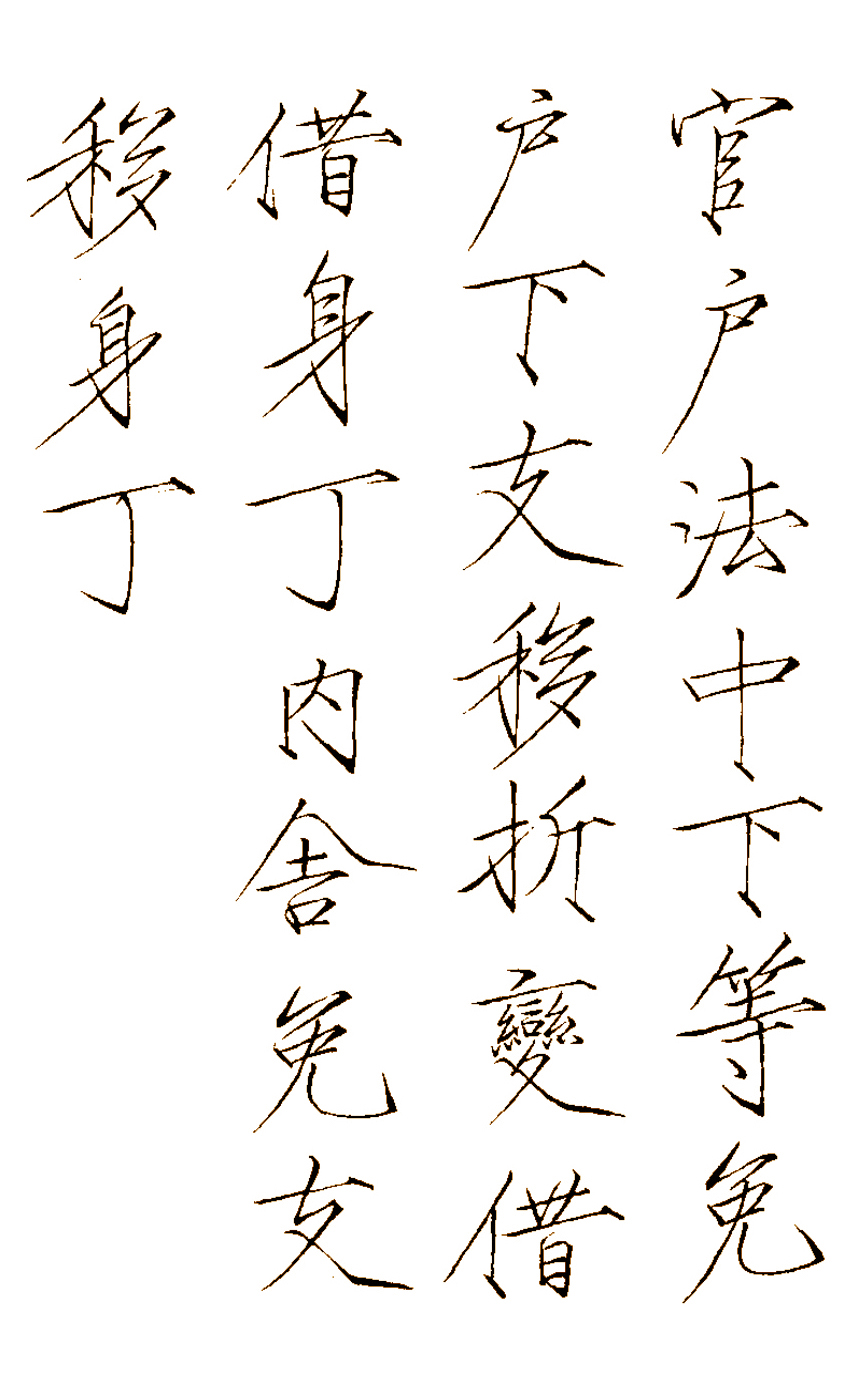 官户法中下等免
户下支移折變借
借身丁内舎免支
移身丁